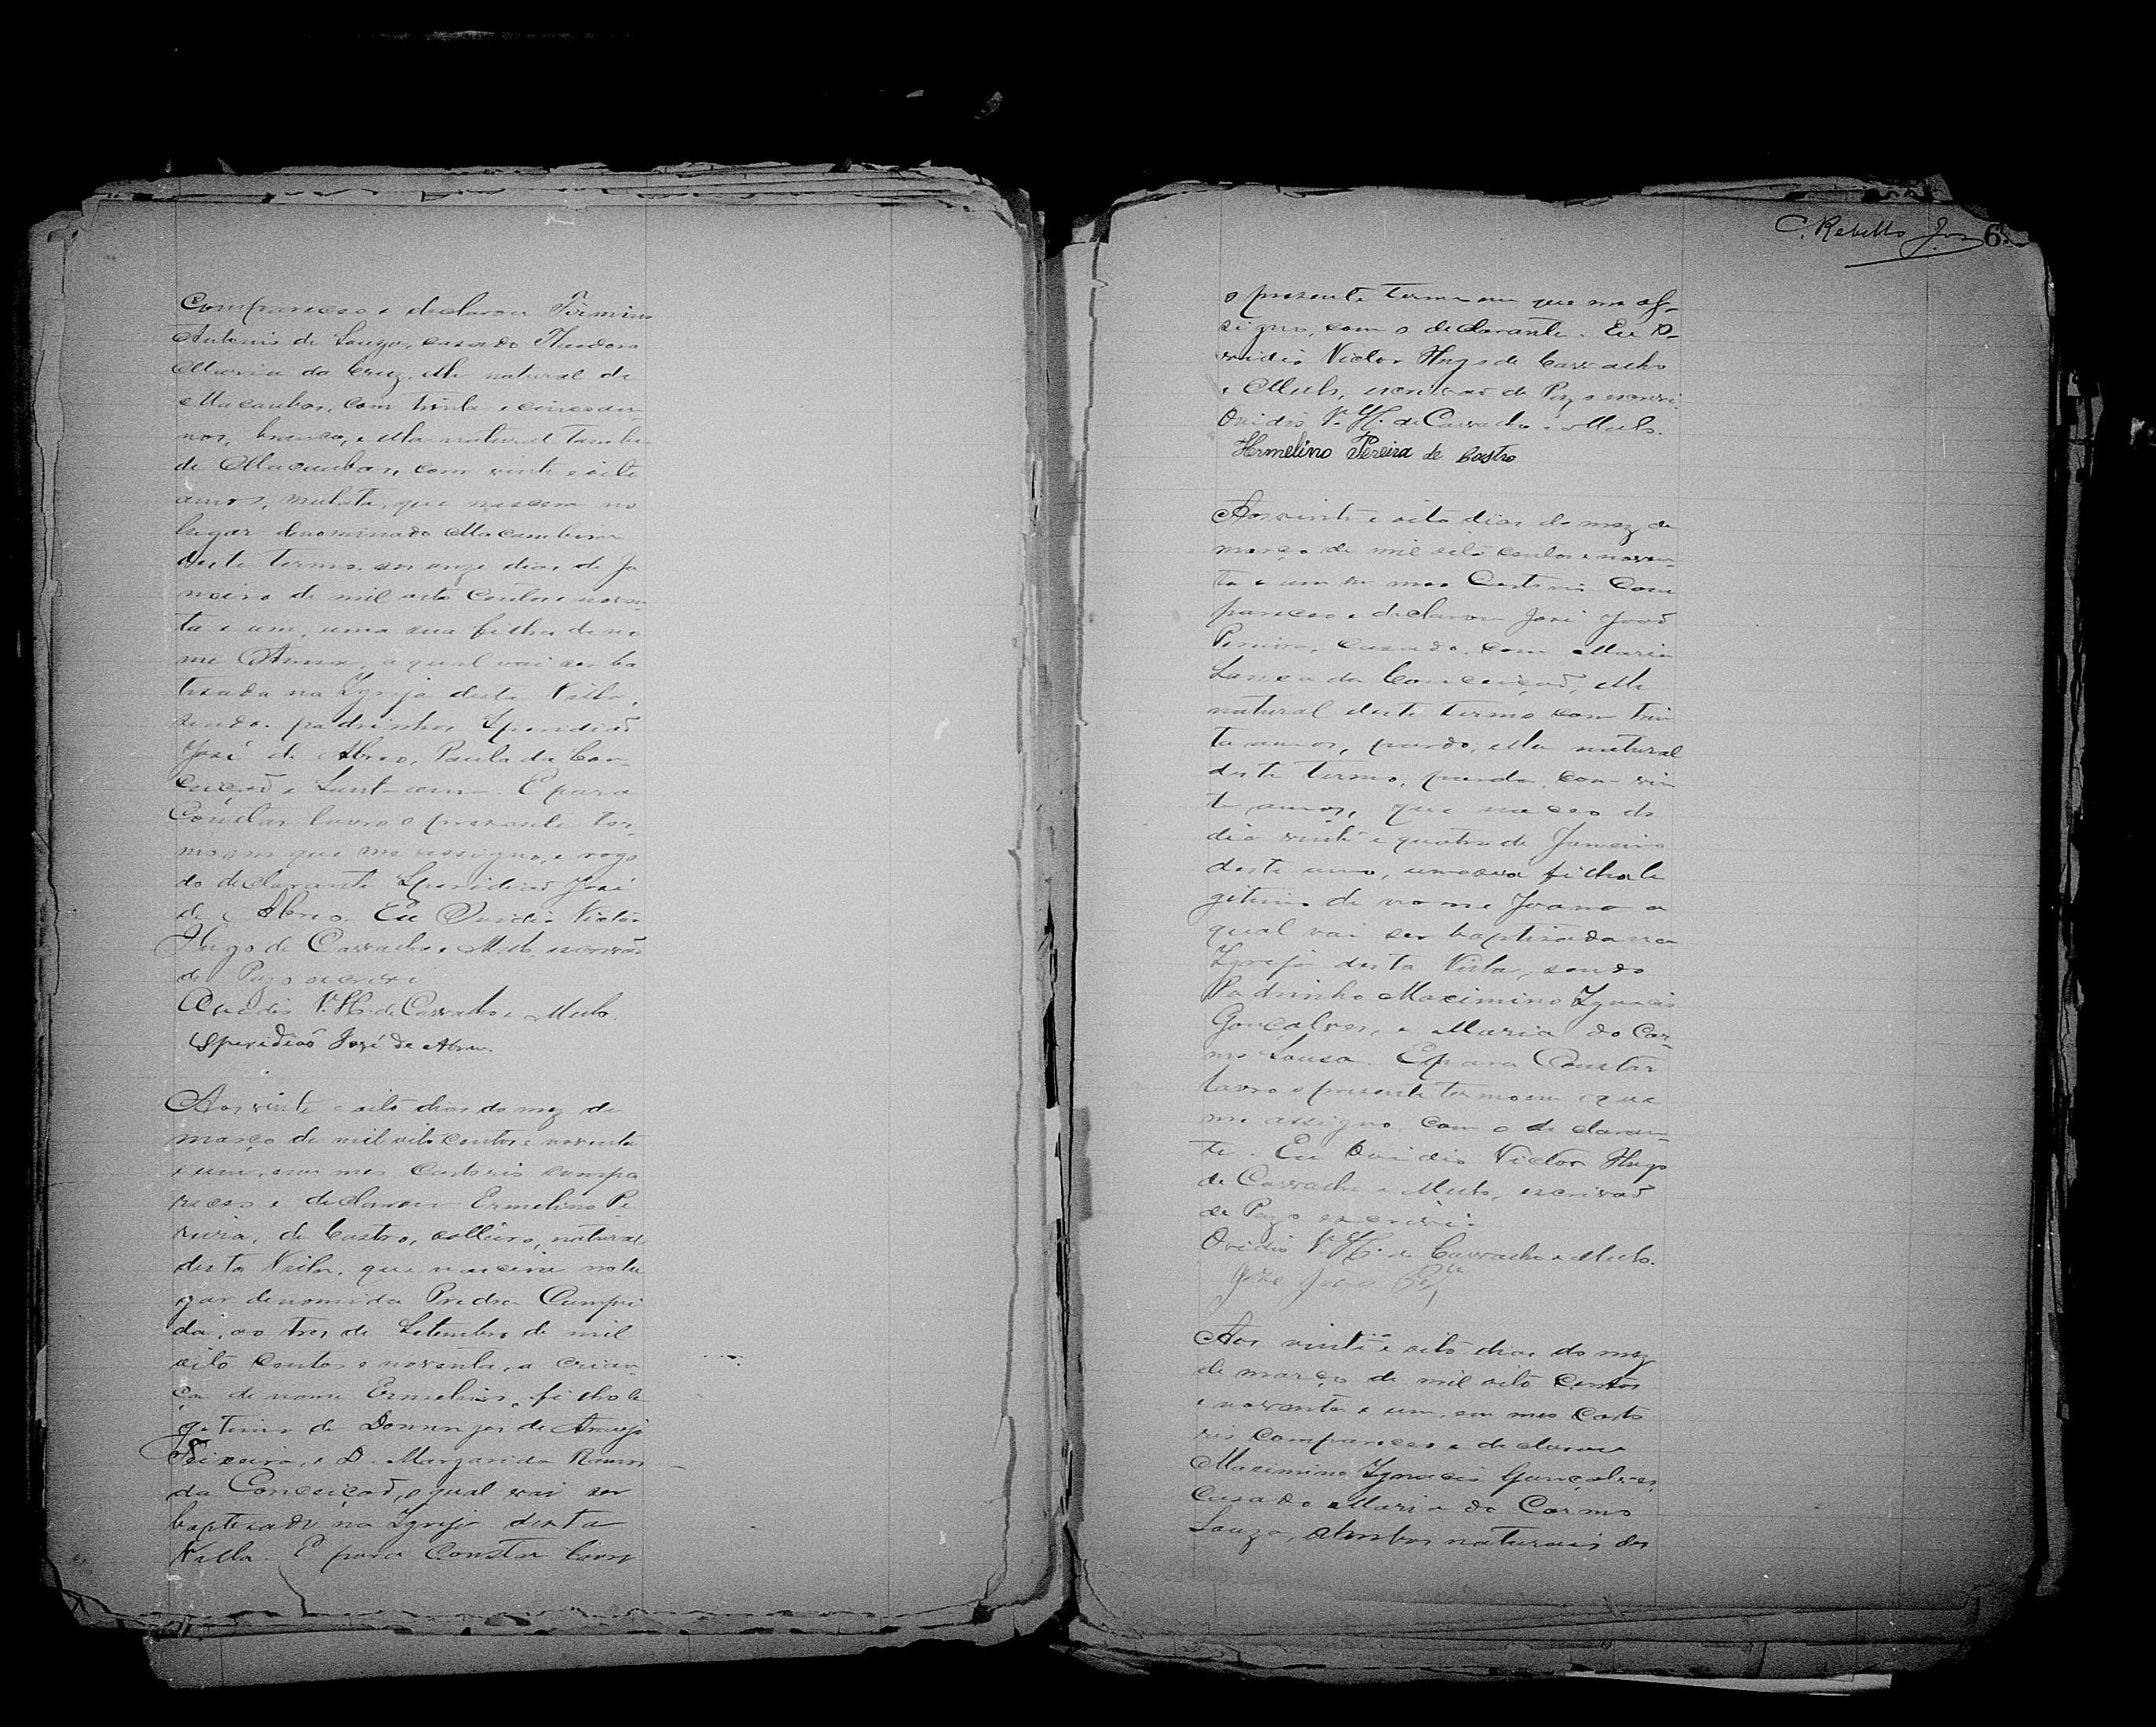 Compareceo e declarou Firmino
Antonio de Souza, casado Theodora
Maria da Cruz, elle natural de
Macaubas, com trinta e cinco an
nos, branco, e ella natural tambe
de Macaubas, com vinte e oito
annos, mulata, que nascera no
lugar denominado Macambira
deste termo aos onze dias de Ja
neiro de mil oito centos e noven
ta e um, uma sua filha de no
me Anna, a qual vai ser ba
tisada na Igreja desta Villa,
sendo padrinhos Speridiaõ
José de Abreo, Paula da Con-
ceiçaõ e Sant-anna. E para
Constar lavro o presente ter-
mo em que me assigno, e rogo
do declarante Speridiaõ José
de Abreo. Eu Ovidio Victor
Hugo de Carvalho e Mello, escrivaõ
de Paz o escrevi
Ovidio V. H. de Carvalho e Mello.
Speridiaõ José de Abreu.
Aos vinte e oito dias do mez de
março de mil oito centos e noventa
e um, em meo Cartorio compa
receo e declarou Ermelino Pe
reira, de Castro, solteiro, natural
desta Villa, que nascera no lu
gar denomida Pedra Compri
da, ao tres de Setembro de mil
oito centos e noventa, a crian
ça de nome Ermelino, filho le
getimo de Domingos de Araujo
Teixeira, e D. Margarida Ramos
da Conceiçaõ, o qual vai ser
baptisado na Igreja desta
Villa. E para Constar lavro
C. Rebello 6
o presente termo em que me as-
signo, com o declarante. Eu O-
vidio Victor Hugo de Carvalho
e Mello, escrivaõ de Paz o escrevi.
Ovidio V. H. de Carvalho e Mello.
Hermelino Pereira de Castro
Aos vinte e oito dias do mez de
março de mil oito centos e noven-
ta e um em meo Cartorio Com
pareceo e declarou José Joaõ
Pereira, casado, com Maria
da Conceiçaõ, elle
natural deste termo com trin
ta annos, pardo, ella natural
deste termo, parda, com vin
te annos, que naceo do
dia vinte e quatro de Janeiro
deste anno, uma sua filha le
gitima de nome Joana a
qual vai ser baptisada na
Igreja desta Villa, sendo
Padrinho Maximino Ignacio
Gonçalves, e Maria do Car-
mo Sousa. E para Constar
lavro o presente termo em que
me assigno, com o declaran-
te. Eu Ovidio Victor Hugo
de Carvalho e Mello, escrivaõ
de Paz o escrevi.
Ovidio V. H. de Carvalho e Mello.
José Joaõ
Aos vinte e oito dias do mez
de março de mil oito centos
e noventa e um, em meo Carto
rio compareceo e declarou
Maximino Ignacio Gonçalves,
Casado Maria do Carmo
Souza, Ambos naturais des